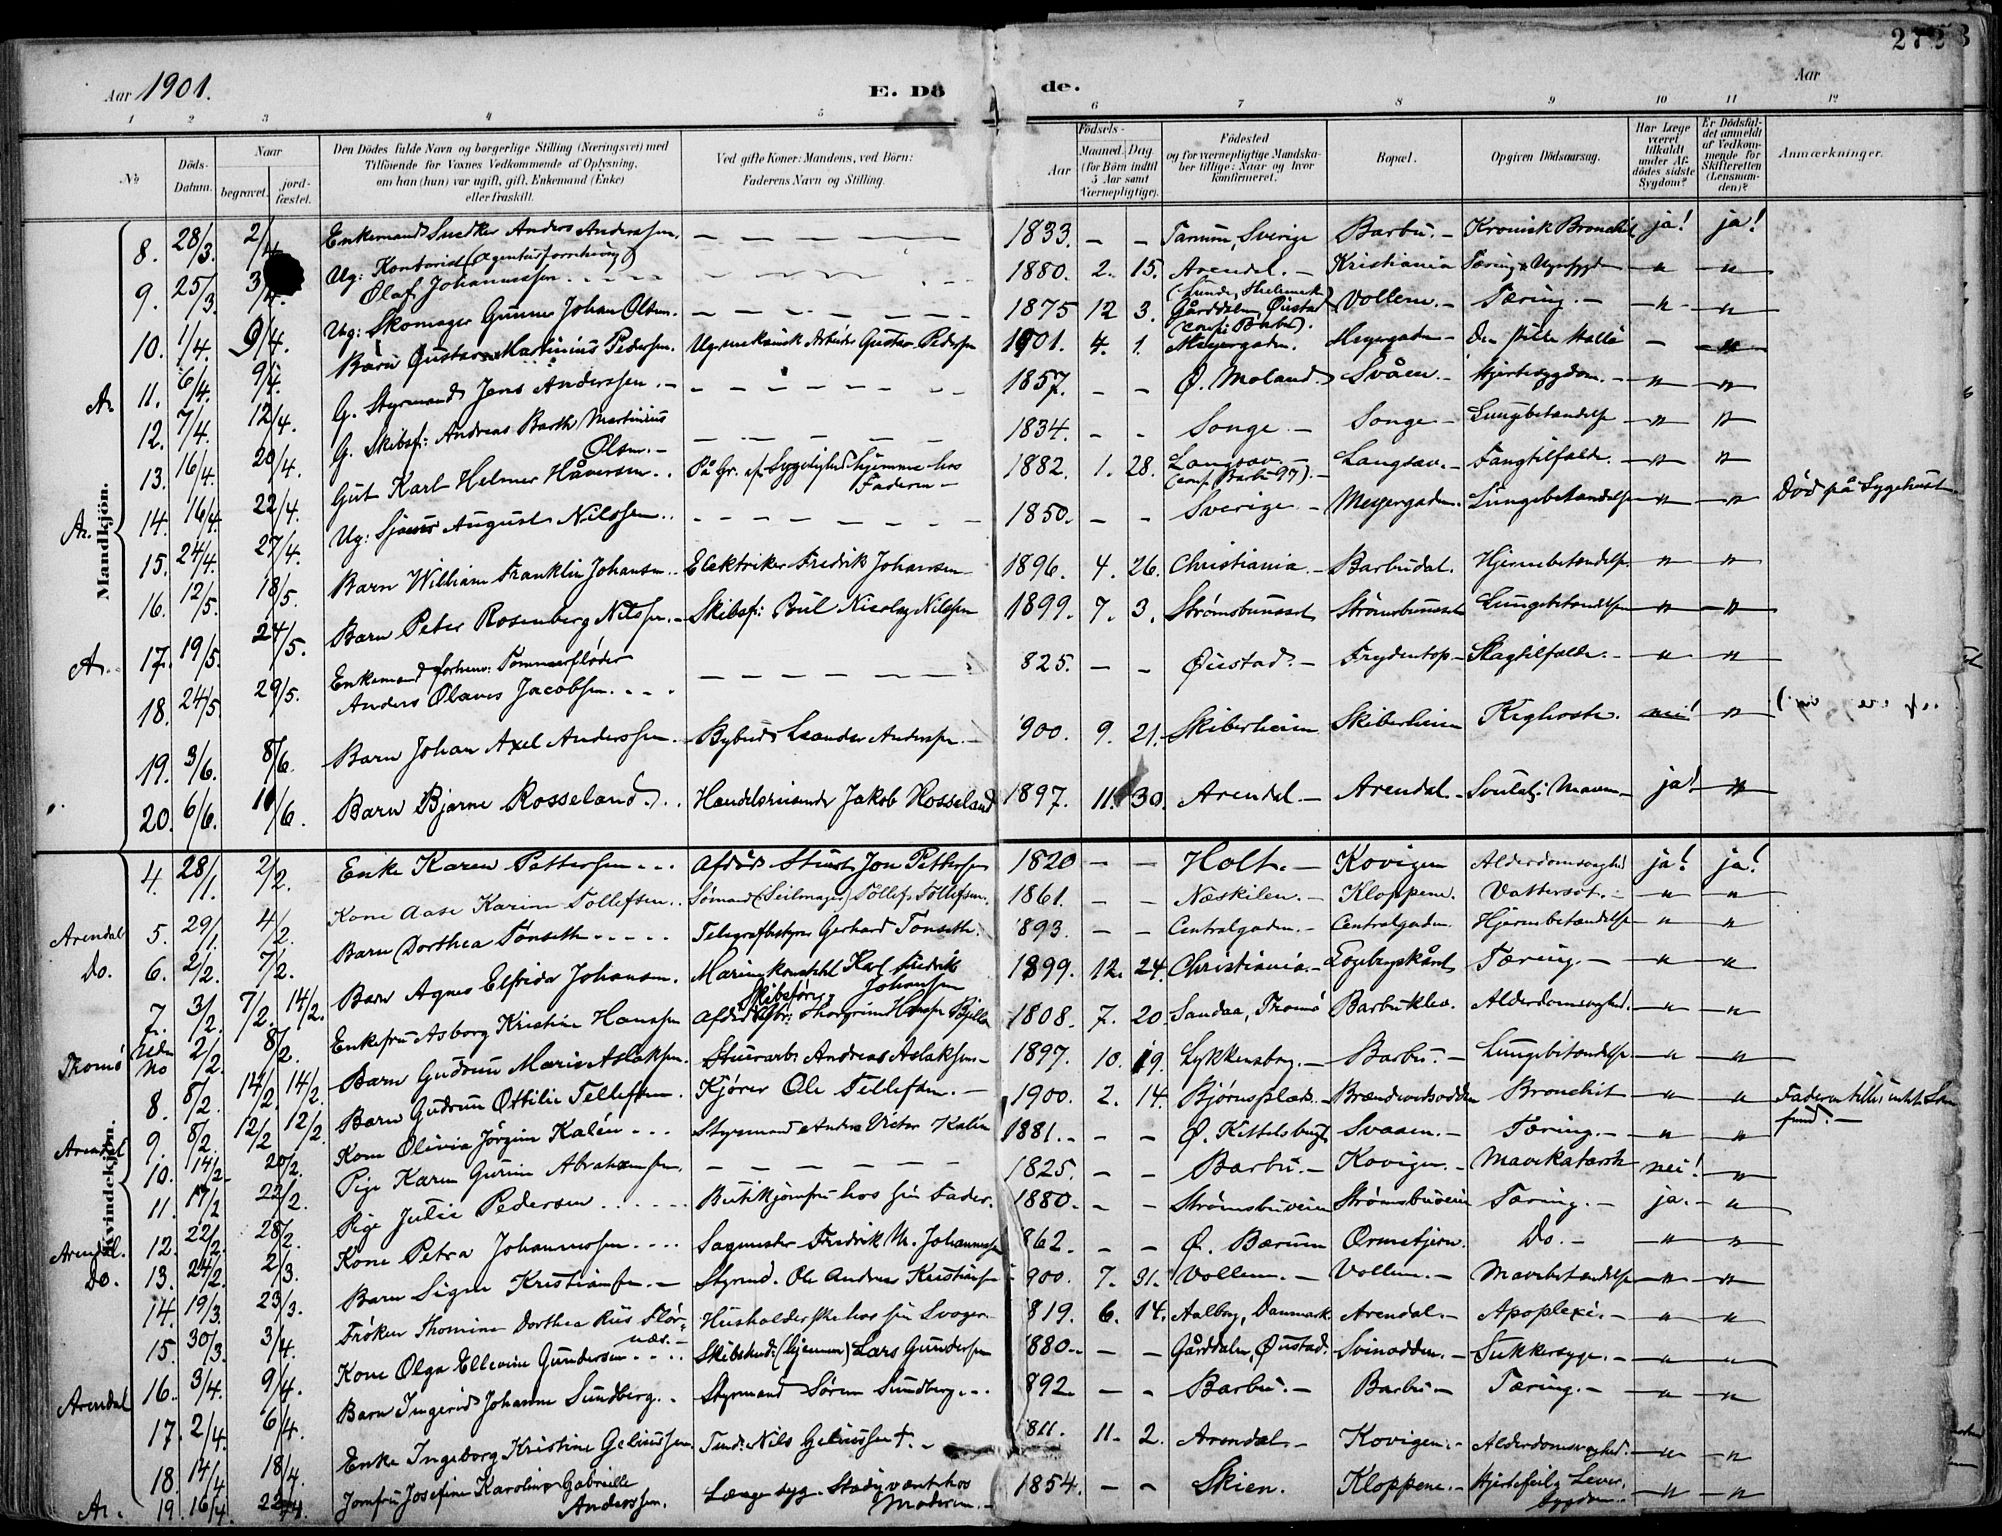 272
Aar 1901.
E. Dö
de.
Aar
1 2 3 4 5 6 7 8 9 10 11 12
№
Döds-Datum.
Naar
begravet. jord-fæstet.
Den Dödes fulde Navn og borgerlige Stilling (Næringsvei) med
Tilföiende for Voxnes Vedkommende af Oplysning,
om han (hun) var ugift, gift, Enkemand (Enke)
eller fraskilt.
Ved gifte Koner: Mandens, ved Börn:
Faderens Navn og Stilling.
Födsels-
Aar Maaned. Dag.
(for Börn indtil 5 Aar samt Værnepligtige).
Födested
og for værnepligtige Mandska-
ber tillige: Naar og hvor
konfirmeret.
Bopæl.
Opgiven Dödsaarsag.
Har Læge været tilkaldt under Af-dødes sidste Sygdom?
Er Dödsfal-det anmeldt af Vedkom-mende for Skifteretten (Lensman-den)?
Anmærkninger.
Mandkjön.
8. 28/3. 2/4 Enkemand Snedker Anders Anderssen. 1833. – – Tanum, Sverige Barbu. Kronisk Bronchit ja! ja!
9. 25/3. 3/4. Ug: Kontorist (Agenturforretning) Olaf Johannessen 1880. 2. 15. Arendal. Kristiania Tæring
10. 1/4. 9/4. Ug: Skomager Gunnar Johan Olsen. 1875 12 3. Gårddalen, Øiestad Vollene. Tæring.
An. 11. 6/4. 9/4. Barn Gustav Martinius Pedersen. Ug. mekanisk Arbeider Gustav Pedersen 1901. 4. 1. Meyergaden. Meyergaden
12. 7/4. 12/4. G. Styrmand Jens Anderssen. 1857. – – Ø. Moland Svåen. Hjertesygdom.
13. 16/4. 20/4. G. Skibsf: Andreas Barth Martinius Olsen. 1834. – – Songe Songe Lungebetændelse
An. 14. 16/4. 22/4. Gut Karl Helmer Håversen På Gr. af Sygelighed hjemme hos Faderen 1882. 1. 28. Langsæv. (conf. Barbu 97). Langsæv.
15. 24/4. 27/4. Ug: Sjømand August Nilssen 1850. – – Sverige Meyergaden. Lungebetændelse Död på Sygehuset
16. 12/5. 18/5. Barn William Franklin Johansen Elektriker Fredrik Johansen 1896. 4. 26. Christiania. Barbudal. Hjernebetændelse.
An. 17. 19/5. 24/5. Barn Peter Rosenberg Nilssen. Skibsf: Nicolay Nilssen 1899. 7. 3. Strømsbuneset Strømsbuneset Lungebetændelse
18. 24/5. 29/5. Enkemand forhenv: Tømmerfløder Anders Olaves Jacobsen. 825. – – Øiestad. Frydentop Slagtilfælde.
19. 3/6. 8/6. Barn Johan Axel Anderssen. Bybud Leander Anderssen. 900. 9. 21. Skiberheien Skiberheien Kighoste. nei!
20. 6/6. 11/6. Barn Bjarne Rosseland Handelsreisende Jakob Rosseland 1897. 11. 30. Arendal Arendal ja!
Kvindekjön.
4. 28/1. 2/2. Enke Karen Pettersen Afdøds Stuert Jon Pettersen 1820 – – Holt. Kovigen Alderdomssvaghed ja! ja!
Arendal 5. 29/1. 4/2. Kone Aase Karine Tollefsen Sømand (Seilmager) Tollef Tollefsen. 1861. – – Næskilen. Kloppene. Vattersot.
Do. 6. 2/2. 7/2. Barn Dorthea Tønseth Telegrafbestyrer Gerhard Tønseth. 893. – – Centralgaden. Centralgaden. Hjernebetændelse
7. 3/2. 7/2. 14/2. Barn Agnes Elfrida Johansen. Marinekonstabel Karl Fredrik Johansen 1899. 12. 24. Christiania. Tæring.
Tromø Uden No 2/2. 8/2. Enkefru Asborg Kristine Hanssen Afdød Skibsfører 1808. 7. 20. Sandaa, Tromø Barbuklev. Alderdomssvaghed.
8. 8/2. 14/2. 14/2. Barn Gudrun Marie Aslaksen. Andreas Aslaksen 1897. 10. 19. Lykkensborg. Barbu. Lungebetændelse
Arendal 9. 8/2. 12/2 12/2. Barn Gudrun Ottilie Tellefsen. Kjører Ole Tellefsen. 1900. 2. 14. Bjørnsplads. Brændevinsodden Bronchit
10. 14/2. 20/2. Kone Olivia Jørgine Kalén Styrmand Anders Victor Kalén 1881. – – Ø. Kittelsbugt Svaaen. Tæring.
11. 17/2 22/2. Pige Karen Gurine Abrahamsen. 1825. – – Barbu. Kovigen. Mavekatarrh nei!
Arendal. 12. 22/2. 28/2. Pige Julie Pedersen Butikjomfru hos sin Fader. 1880. – – Strømsbuveien Strømsbuveien Tæring. ja.
Do. 13. 24/2. 2/3. Kone Petra Johannessen Sagmester Fredrik M. Johannessen 862. – – Ø. Bærum Do.
14. 19/3. 23/3. Barn Signe Kristiansen. Styrmd. Ole Andreas Kristiansen 900. 7. 31. Vollene. Vollene. Mavebetændelse
15. 30/3. 3/4. Frøken Thomine Dorthea Riis Husholderske hos sin Svoger. 819. 6. 14. Aalborg, Danmark Arendal. Apoplexi.
Arendal 16. 3/4. 9/4. Kone Olga Ellevine Gundersen (hjemme) Lars Gundersen 1880. – – Gårddalen, Øiestad. Svinodden. Sukkersyge.
17. 2/4. 6/4. Barn Ingerid Johanne Sundberg. Styrmand Søren Sundberg. 892. – – Barbu. Barbu Tæring.
18. 14/4 18/4. Enke Ingeborg Kristine Geliussen. Nils Geliussen †. 811. 11. 2. Arendal Kovigen. Alderdomssvaghed.
An. 19. 16/4. 22/4. Jomfru Josefine Karoline Gabrielle Anderssen. Længe syg. Stadig været hos Moderen. 1854. – – Skien. Kloppene. Hjertefeil, Lever-sygdom.